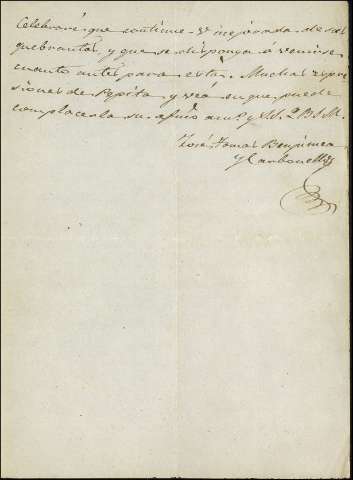 Celebraré que continue V mejorada de sus
quebrantos, y que se disponga á venirse
cuanto antes para esta. Muchas espre
siones de Pepita y vea en que puede
complacerla su afmo am.º y S.S. Q.B.S.M.
José Tomas
y Carbonell